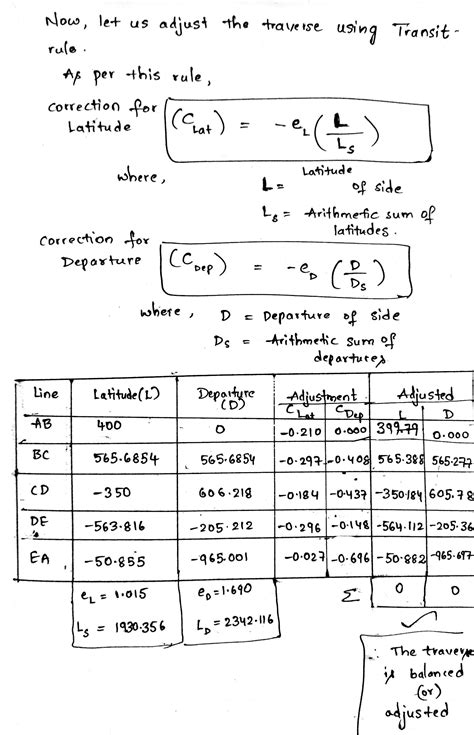 Now, let us adjust the traverse using Transit-
rule.
As per this rule,
correction for
Latitude
(C_Lat) = -e_L (L/L_s)
where,
L = Latitude of side
L_s = Arithmetic sum of
latitudes.
correction for
Departure
(C_Dep) = -e_D (D/D_s)
where, D = Departure of side
D_s = Arithmetic sum of
departures
Line Latitude(L) Departure (D) Adjustment Adjusted
C_Lat C_Dep L D
AB 400 0 -0.210 0.000 399.79 0.000
BC 565.6854 565.6854 -0.297 -0.408 565.388 565.277
CD -350 606.218 -0.184 -0.437 -350.184 605.78
DE -563.816 -205.212 -0.296 -0.148 -564.112 -205.36
EA -50.855 -965.001 -0.027 -0.696 -50.882 -965.697
e_L = 1.015 e_D = 1.690 Σ 0 0
L_s = 1930.356 L_D = 2342.116
∴ The traverse
is balanced
(or)
adjusted